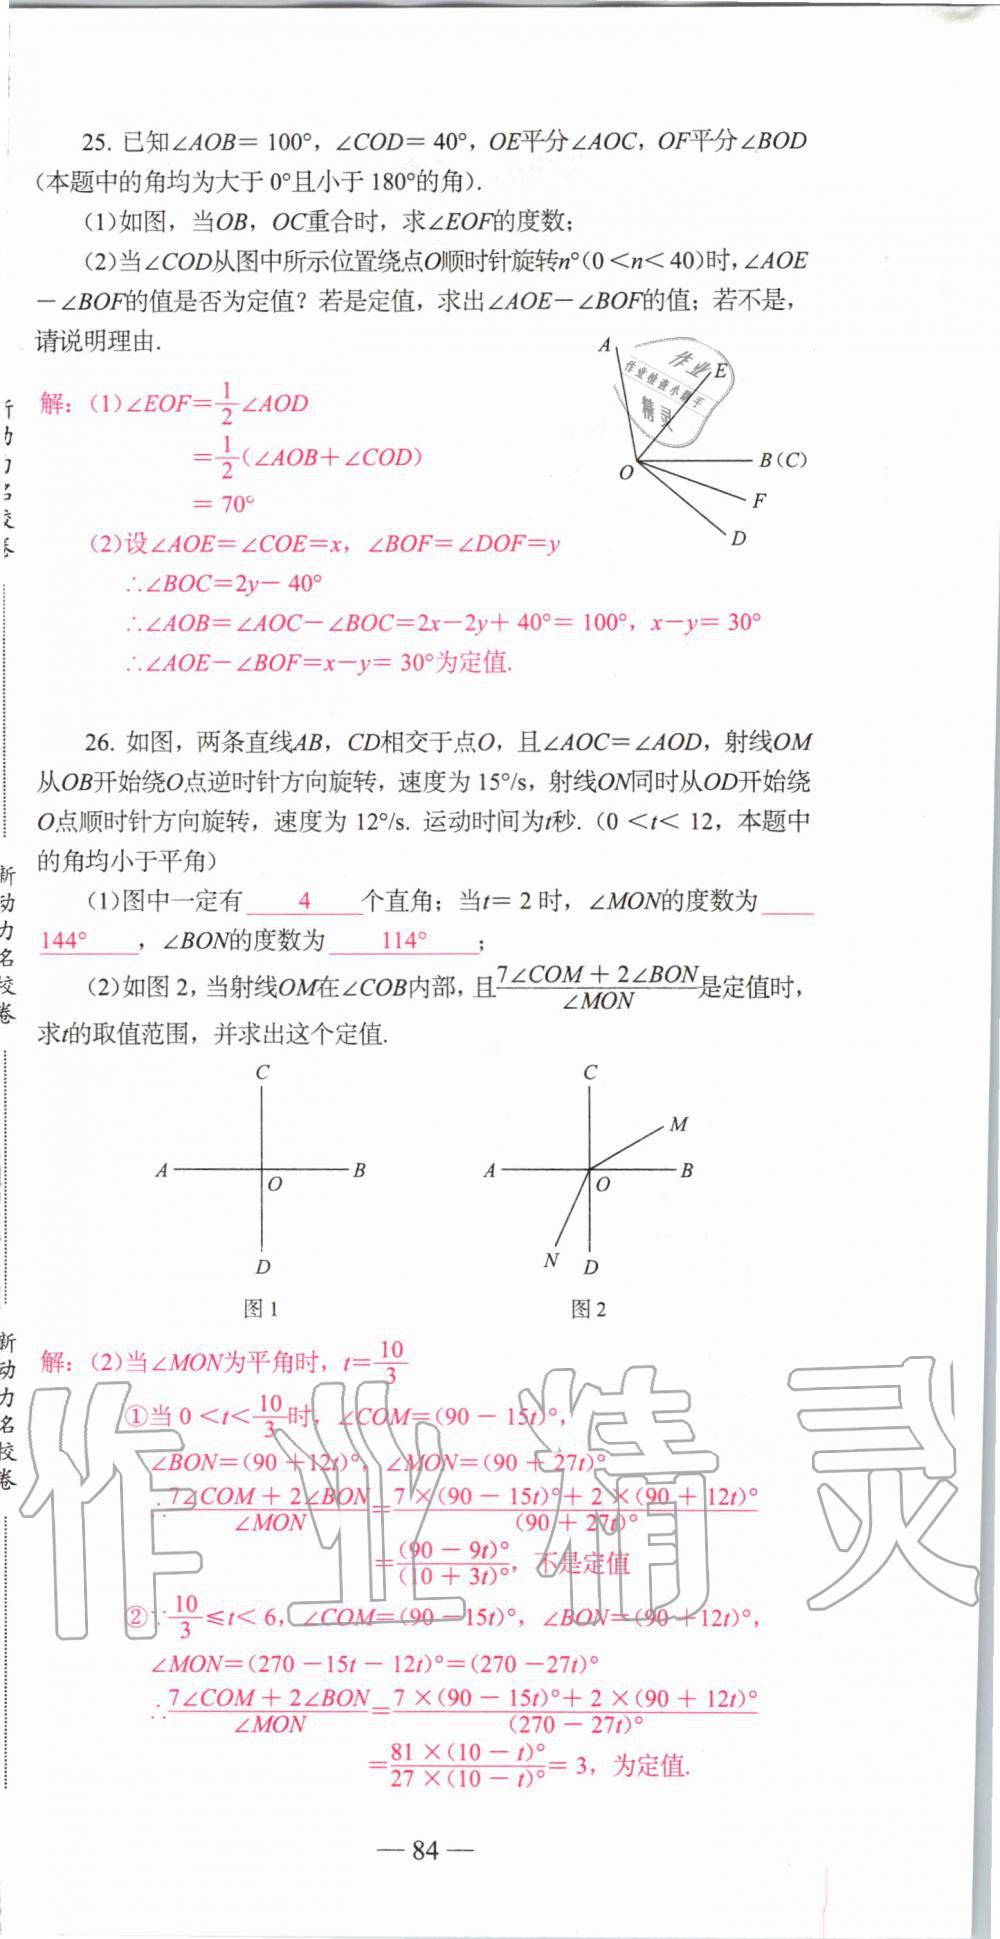 25. 已知∠AOB= 100°，∠COD= 40°，OE平分∠AOC，OF平分∠BOD
(本题中的角均为大于 0°且小于 180°的角).
(1)如图，当OB，OC重合时，求∠EOF的度数；
(2)当∠COD从图中所示位置绕点O顺时针旋转n°(0 <n< 40)时，∠AOE
－∠BOF的值是否为定值？若是定值，求出∠AOE－∠BOF的值；若不是，
请说明理由.
A
E
B(C)
O
F
D
作业
作业检查小助手
精灵
解：(1)∠EOF=1/2∠AOD
=1/2(∠AOB+∠COD)
= 70°
(2)设∠AOE=∠COE=x，∠BOF=∠DOF=y
∴∠BOC=2y－ 40°
∴∠AOB=∠AOC－∠BOC=2x－2y+ 40°= 100°，x－y= 30°
∴∠AOE－∠BOF=x－y= 30°为定值.
26. 如图，两条直线AB，CD相交于点O，且∠AOC=∠AOD，射线OM
从OB开始绕O点逆时针方向旋转，速度为 15°/s，射线ON同时从OD开始绕
O点顺时针方向旋转，速度为 12°/s. 运动时间为t秒.(0 <t< 12，本题中
的角均小于平角)
(1)图中一定有 4 个直角；当t= 2 时，∠MON的度数为
144° ，∠BON的度数为 114° ；
(2)如图 2，当射线OM在∠COB内部，且(7∠COM + 2∠BON)/∠MON是定值时，
求t的取值范围，并求出这个定值.
C
A
O
B
D
图 1
C
M
A
O
B
N
D
图 2
解：(2)当∠MON为平角时，t=10/3
①当 0 <t<10/3时，∠COM=(90 － 15t)°，
∠BON=(90 +12t)°，∠MON=(90 + 27t)°
∴(7∠COM + 2∠BON)/∠MON=(7 ×(90 － 15t)°+ 2 ×(90 + 12t)°)/(90 + 27t)°
=(90 － 9t)°/(10 + 3t)°，不是定值
②∵10/3≤t< 6，∠COM=(90 －15t)°，∠BON=(90 +12t)°，
∠MON=(270 －15t－ 12t)°=(270 －27t)°
∴(7∠COM + 2∠BON)/∠MON=(7 ×(90 － 15t)°+ 2 ×(90 + 12t)°)/(270 － 27t)°
=(81 ×(10 － t)°)/(27 ×(10 － t)°)= 3，为定值.
作业精灵
新动力名校卷
新动力名校卷
新动力名校卷
— 84 —